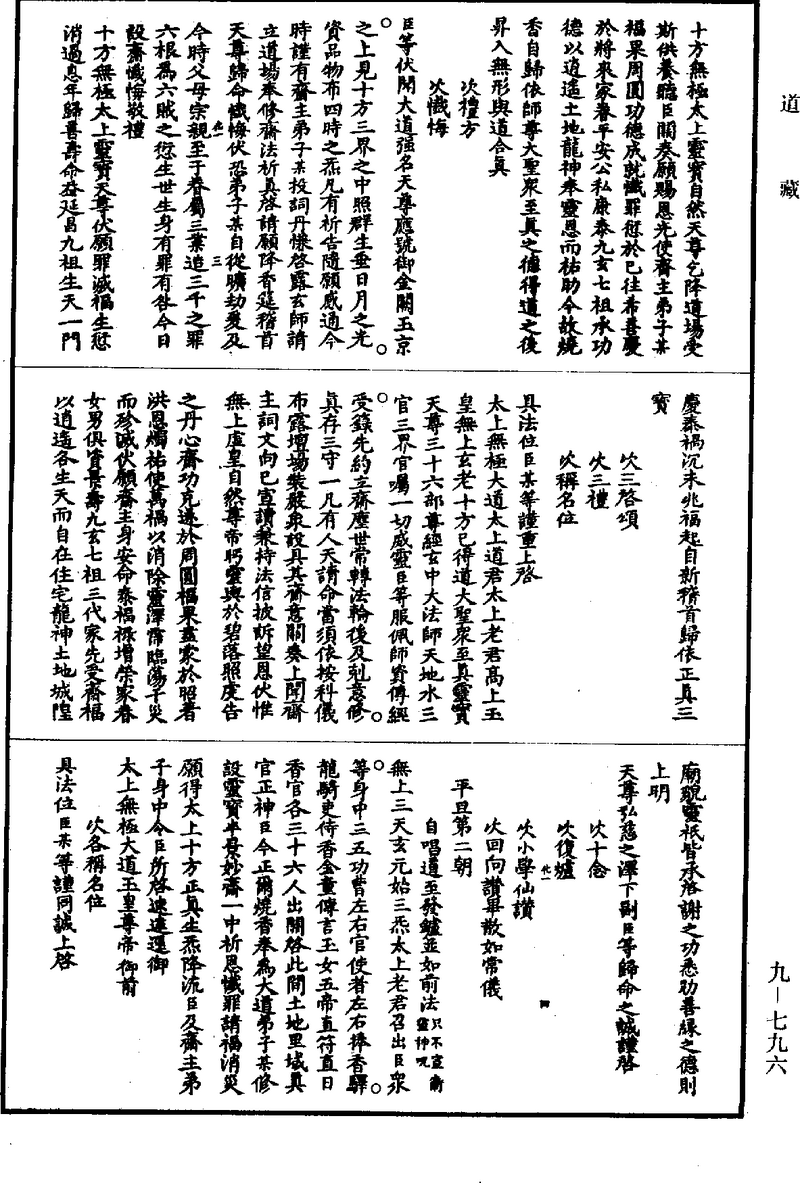 道藏
十方無極太上靈寶自然天尊乞降道場受
斯供養聽臣關奏願賜恩光使齋主弟子某
福果周圓功德成就懺罪愆於已往希善慶
於將來家眷平安公私康泰九玄七祖承功
德以逍遙土地龍神奉靈恩而祐助今故燒
香自歸依師尊大聖衆至真之德得道之後
昇入無形與道合真
次禮方
次懺悔
臣等伏聞大道强名天尊應號御金闕玉京
之上見十方三界之中照群生垂日月之光
資品物布四時之炁凡有祈告隨願感通今
時謹有齋主弟子某投詞丹慊啓露玄師請
立道場奉修齋法祈真啓請願降香筵稽首
天尊歸命懺悔伏恐弟子某自從曠劫爰及
今時父母宗親至于眷屬三業造三千之罪
六根為六賊之愆生世生身有罪有咎今日
設齋懺悔敬禮
十方無極太上靈寶天尊伏願罪滅福生愆
消過息年歸善壽命益延昌九祖生天一門
慶泰禍沉未兆福起自新稽首歸依正真三
寶
次三啓頌
次三禮
次稱名位
具法位臣某等謹重上啓
太上無極大道太上道君太上老君高上玉
皇無上玄老十方已得道大聖衆至真靈寶
天尊三十六部尊經玄中大法師天地水三
官三界官屬一切威靈臣等服佩師資傳經
受籙先約立齋塵世常轉法輪後及剋意修
真存三守一凡有人天請命當須依按科儀
布露壇場裝嚴象設具其齋意關奏上聞齋
主詞文向已宣讀兼持法信披訴望恩伏惟
無上虛皇自然尊帝眄靈輿於碧落照虔告
之丹心齋功克遂於周圓福果盡蒙於昭著
洪恩燭祐使萬禍以消除靈澤霈臨蕩千災
而殄滅伏願齋主身安命泰福祿增榮家眷
女男俱資長壽九玄七祖三代家先受齋福
以逍遙各生天而自在住宅龍神土地城隍
廟貌靈祇皆承啓謝之功悉劝善緣之德則
上明
天尊弘慈之澤下副臣等歸命之誠謹啓
次十念
次復爐
次小學仙讚
次回向讚畢散如常儀
平旦第二朝
自唱道至發鑪並如前法只不宣衛靈仲呪
無上三天玄元始三炁太上老君召出臣衆
等身中三五功曹左右官使者左右捧香驛
龍騎吏侍香金童傳言玉女五帝直符直日
香官各三十六人出關啓此間土地里域真
官正神臣今正爾燒香奉為大道弟子某修
設靈寶半景妙齋一中祈恩懺罪請福消災
願得太上十方正真生炁降流臣及齋主弟
子身中令臣所啓速達逕御
太上無極大道玉皇尊帝御前
次各稱名位
具法位臣某等謹同誠上啓
九—七九六